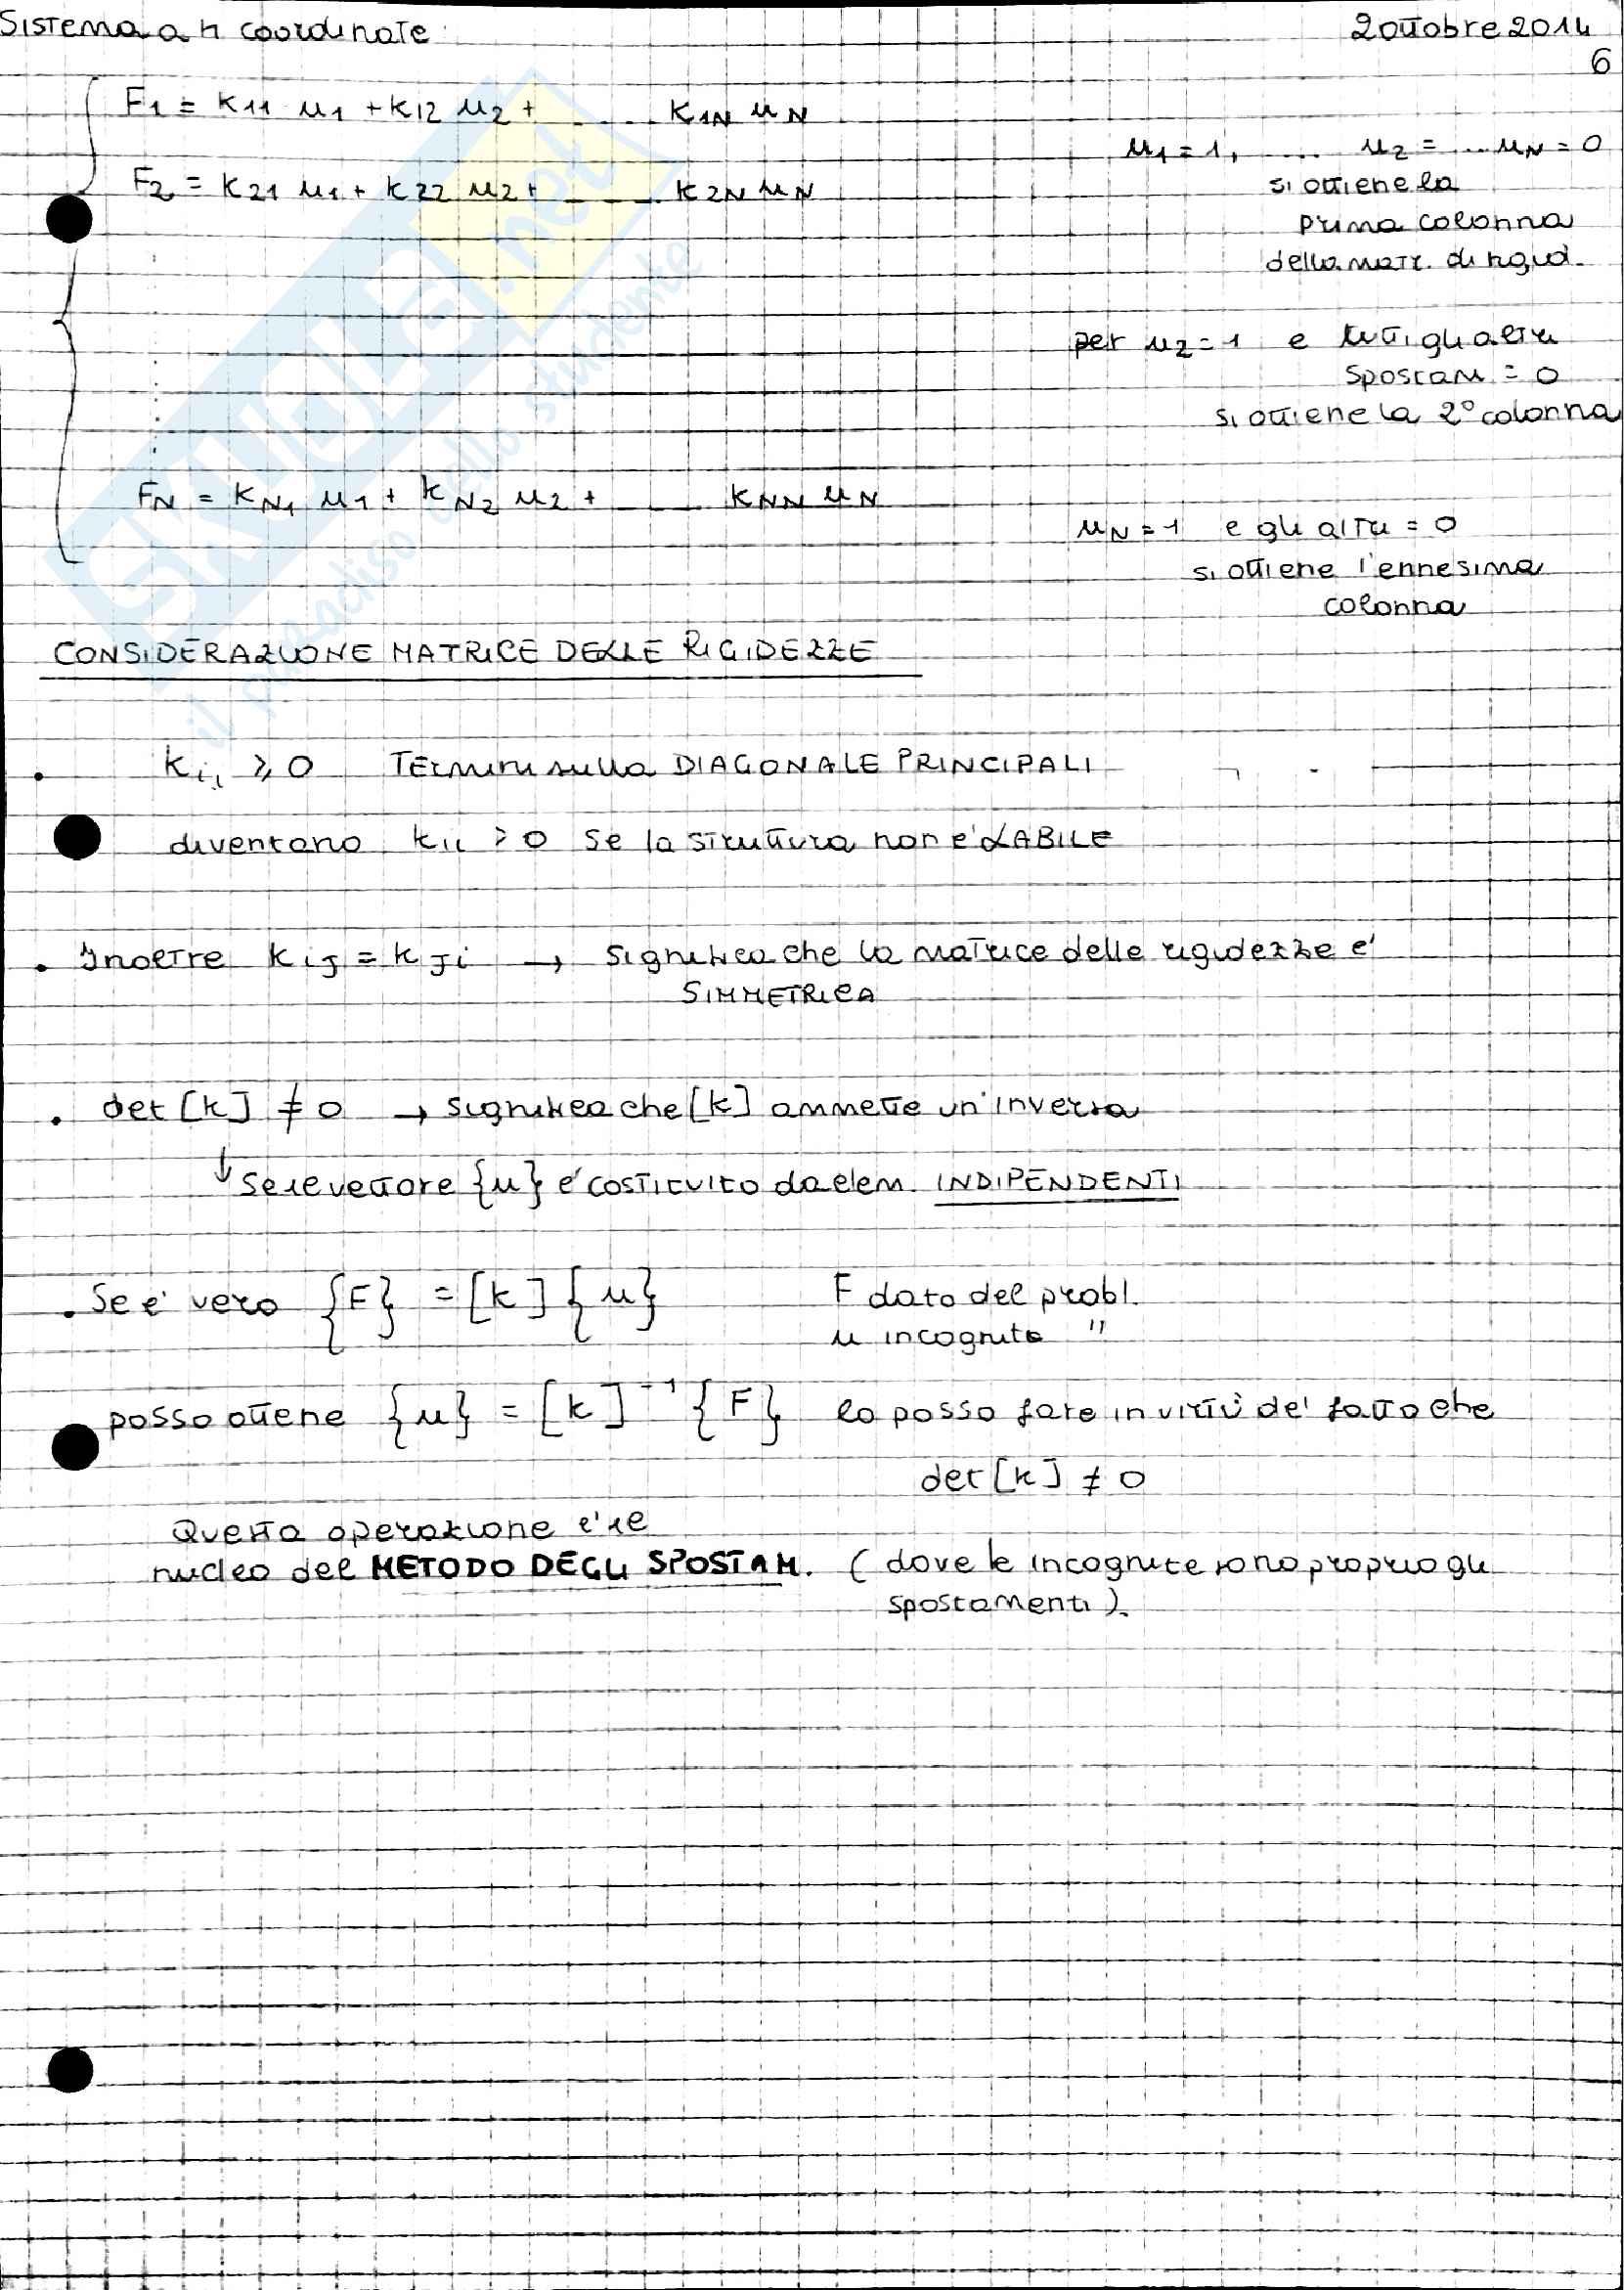 Sistema a n coordinate
2 ottobre 2014
6
F1 = K11 u1 + K12 u2 + ...... K1N uN
F2 = K21 u1 + K22 u2 + ...... K2N uN
FN = KN1 u1 + KN2 u2 + ...... KNN uN
u1 = 1, .... u2 = ... uN = 0
si ottiene la
prima colonna
della matr. di rigid.
per u2 = 1 e tutti gli altri
spostam = 0
si ottiene la 2° colonna
uN = 1 e gli altri = 0
si ottiene l'ennesima
colonna
CONSIDERAZIONE MATRICE DELLE RIGIDEZZE
. Kii ⩾ 0 Termini sulla DIAGONALE PRINCIPALI
diventano Kii > 0 se la struttura non è LABILE
. Inoltre Kij = Kji → significa che la matrice delle rigidezze è
SIMMETRICA
. det [K] ≠ 0 → significa che [K] ammette un'inversa
↓ Se il vettore {u} è costituito da elem. INDIPENDENTI
. Se è vero {F} = [K] {u} F dato del probl.
u incognite "
posso ottiene {u} = [K]⁻¹ {F} lo posso fare in virtù de' fatto che
det [K] ≠ 0
Questa operazione è il
nucleo del METODO DEGLI SPOSTAM. (dove le incognite sono proprio gli
spostamenti).
SKUOLA.net
il paradiso dello studente